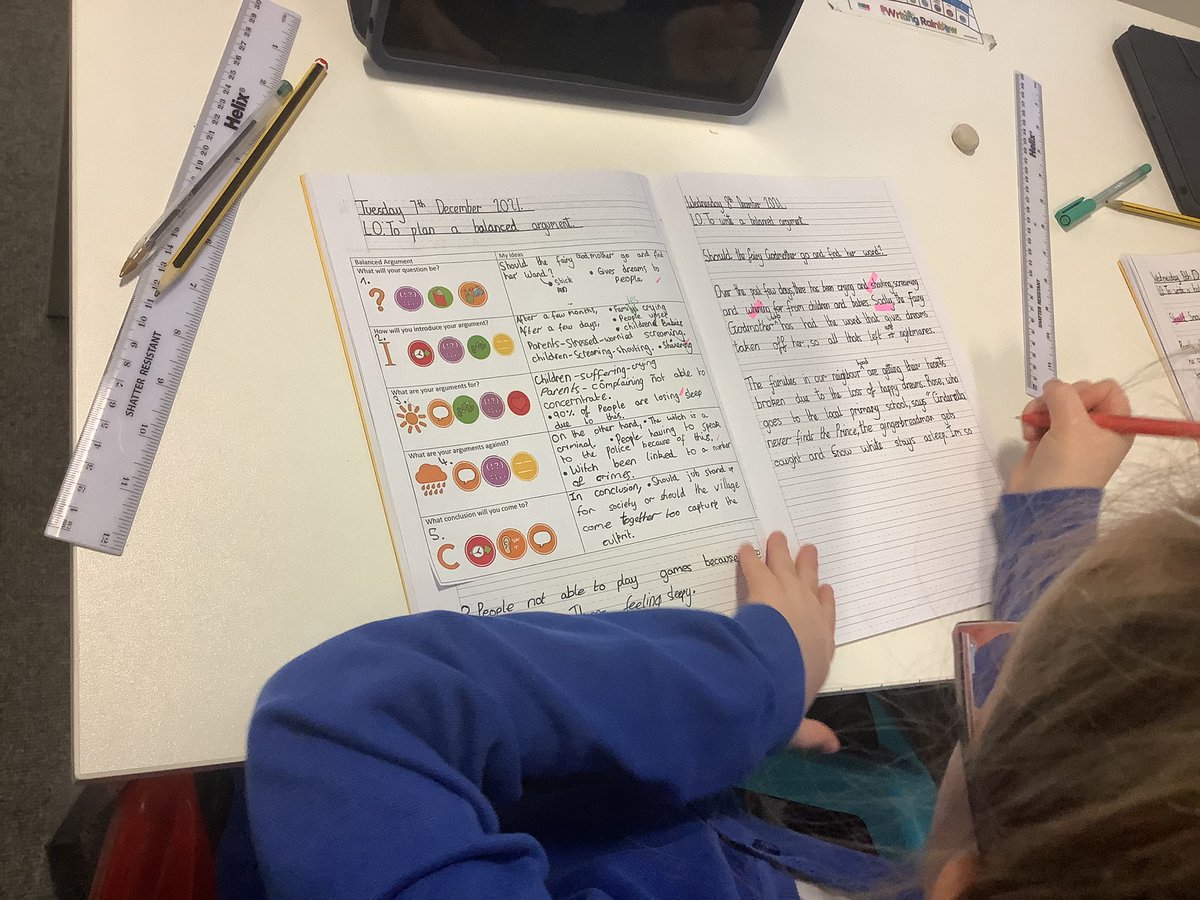 Tuesday 7th December 2021.
LO: To plan a balanced argument.
Balanced Argument
My ideas
What will your question be?
1.
?
Should the fairy Godmother go and find
her Wand?
• Gives dreams to
People
Stick
How will you introduce your argument?
2.
I
After a few months,
After a few days,
Parents-Stressed-worried
children-Screaming-Shouting.
• Families crying
• People upset
• children & Babies
screaming,
• Shivering
What are your arguments for?
3.
Children-suffering-crying
Parents-complaining not able to
concentrate.
• 90% of People are losing sleep
due to this.
What are your arguments against?
4.
On the other hand, • The witch is a
criminal, • People having to speak
to the Police because of this.
• Witch been linked to a number
of crimes.
What conclusion will you come to?
5.
C
In conclusion, • Should job stand up
for society or should the village
come together too capture the
culprit.
People not able to play games because
feeling sleepy.
Wednesday 8th December 2021.
LO: To write a balanced argument.
Should the fairy Godmother go and find her wand?
Over the past few days, there has been crying and shouting, screaming
and from children and babies. Sadly, the Fairy
Godmother has had the wand that gives dreams
taken off her, so all thats left are nightmares
The families in our neighbourhood are getting their hearts
broken due to the loss of happy dreams. Rose, who
goes to the local primary school, says "Cinderella
never finds the Prince, the gingerbreadman gets
caught and snow white stays asleep. I'm so
Helix
SHATTER RESISTANT
Helix
SHATTER RESISTANT
#Writing Rainbow